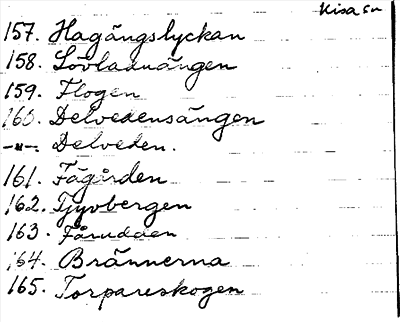 Kisa sn
157. Hagängslyckan
158. Lövladuängen
159. Flogen
160. Delvedensängen
–"–. Delveden.
161. Fägården
162. Tjyvbergen
163. Fårudden
164. Brännerna
165. Torpareskogen